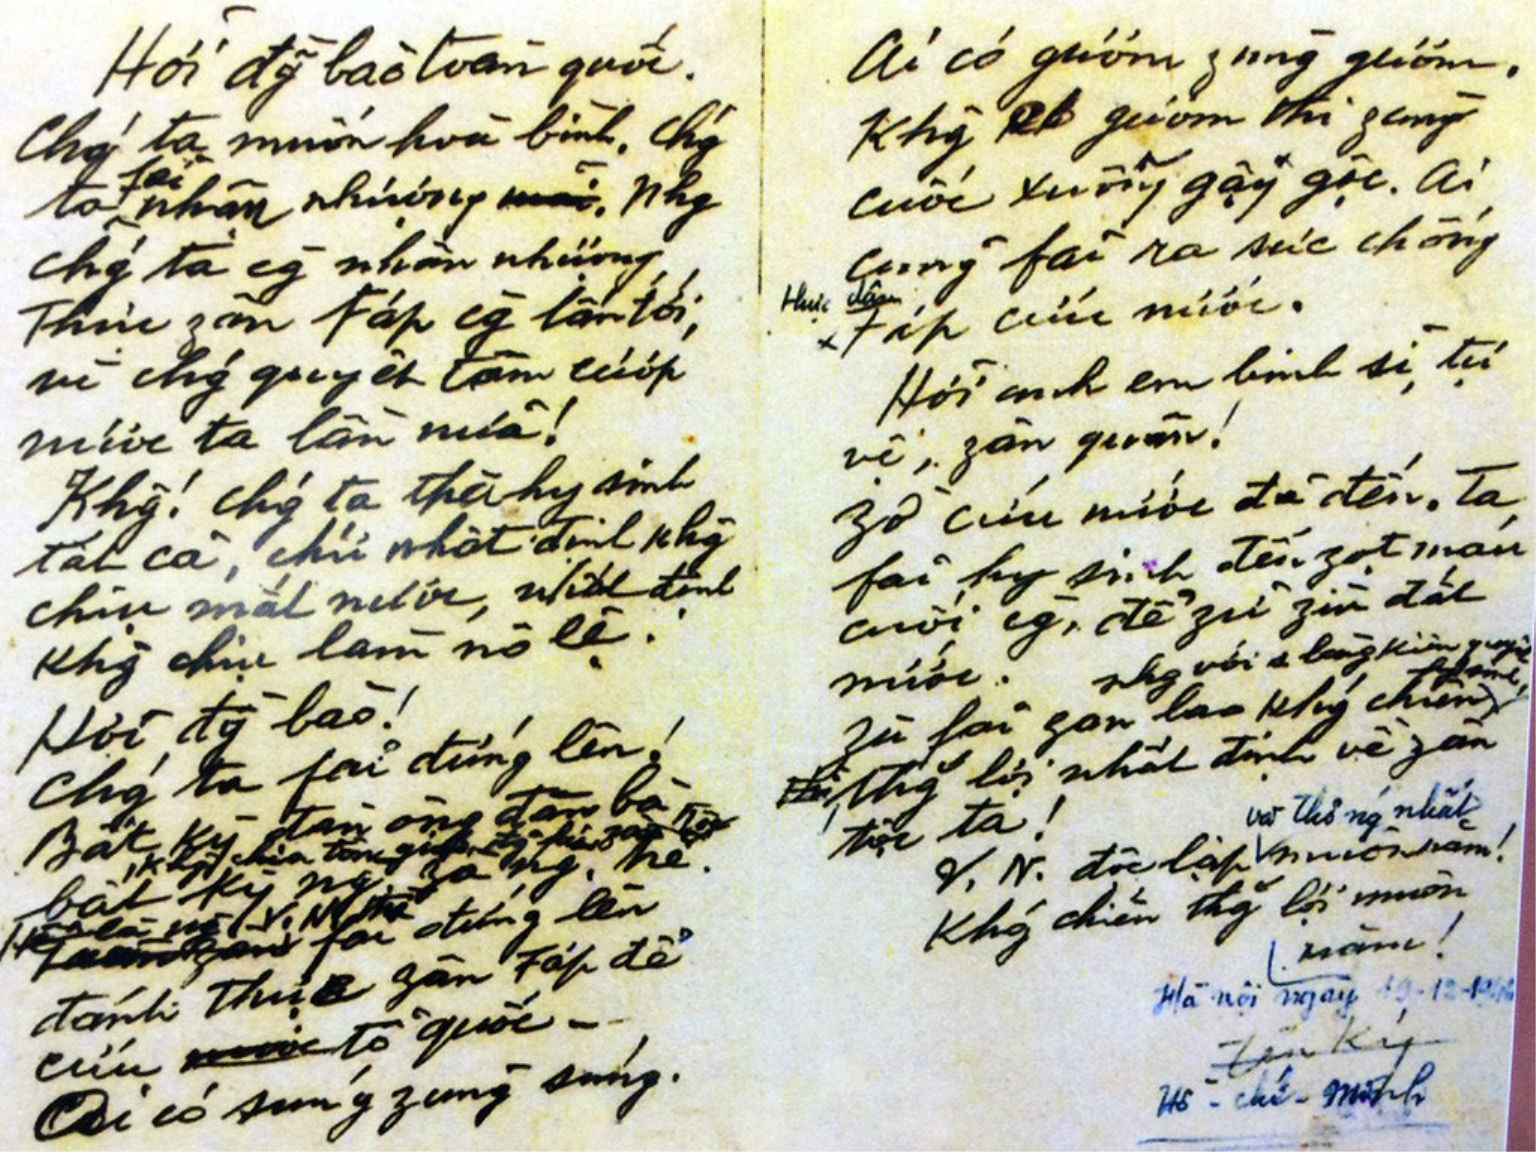 Hỡi đg̀ bào toàn quốc.
Chǵ ta muốn hoà bình, chǵ
ta fải nhân nhượng. Nhg
chǵ ta cg̀ nhân nhượng,
Thực zân Fáp cg̀ lấn tới,
vì chǵ quyết tâm cướp
nước ta lần nữa!
Khg! chǵ ta thà hy sinh
tất cả, chứ nhất định khg
chịu mất nước, nhất định
khg chịu làm nô lệ.
Hỡi đg̀ bào!
Chǵ ta fải đứng lên!
Bất kỳ đàn ông đàn bà
bất kỳ ng. zà ng. trẻ.
, khg chia tôn giáo, đg̉ fái, zân tộc
Hễ là ng V.N. thì
fải đứng lên
đánh Thực zân Fáp để
cứu tổ quốc –
Ai có súng zùng súng.
Ai có gươm zùng gươm,
Khg gươm thì zùng
cuốc xuổng gậy gộc. Ai
cũng fải ra sức chống
thực dân
Fáp cứu nước.
Hỡi anh em binh sĩ, tự
vệ, zân quân!
Zờ cứu nước đã đến. Ta
fải hy sinh đến zọt máu
cuối cg̀, để zữ zìn đất
nước.
Zù fải gan lao khǵ chiến,
nhg với 1 lòng kiên quyết
thǵ lợi nhất định về zân
tộc ta!
V. N. độc lập và thống nhất muôn năm!
Khǵ chiến thǵ lợi muôn
năm!
Hà nội ngày 19-12-1946
Hồ-chí-Minh